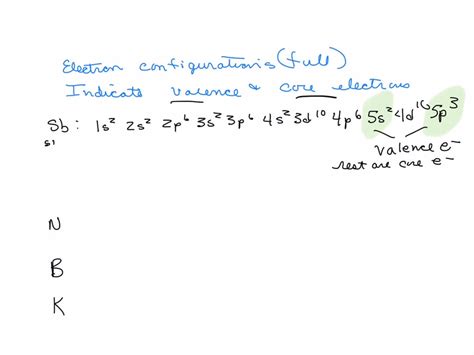 Electron configurations (full)
Indicate valence & core electrons
Sb: 1s² 2s² 2p⁶ 3s² 3p⁶ 4s² 3d¹⁰ 4p⁶ 5s² 4d¹⁰ 5p³
51
valence e⁻
rest are core e⁻
N
B
K